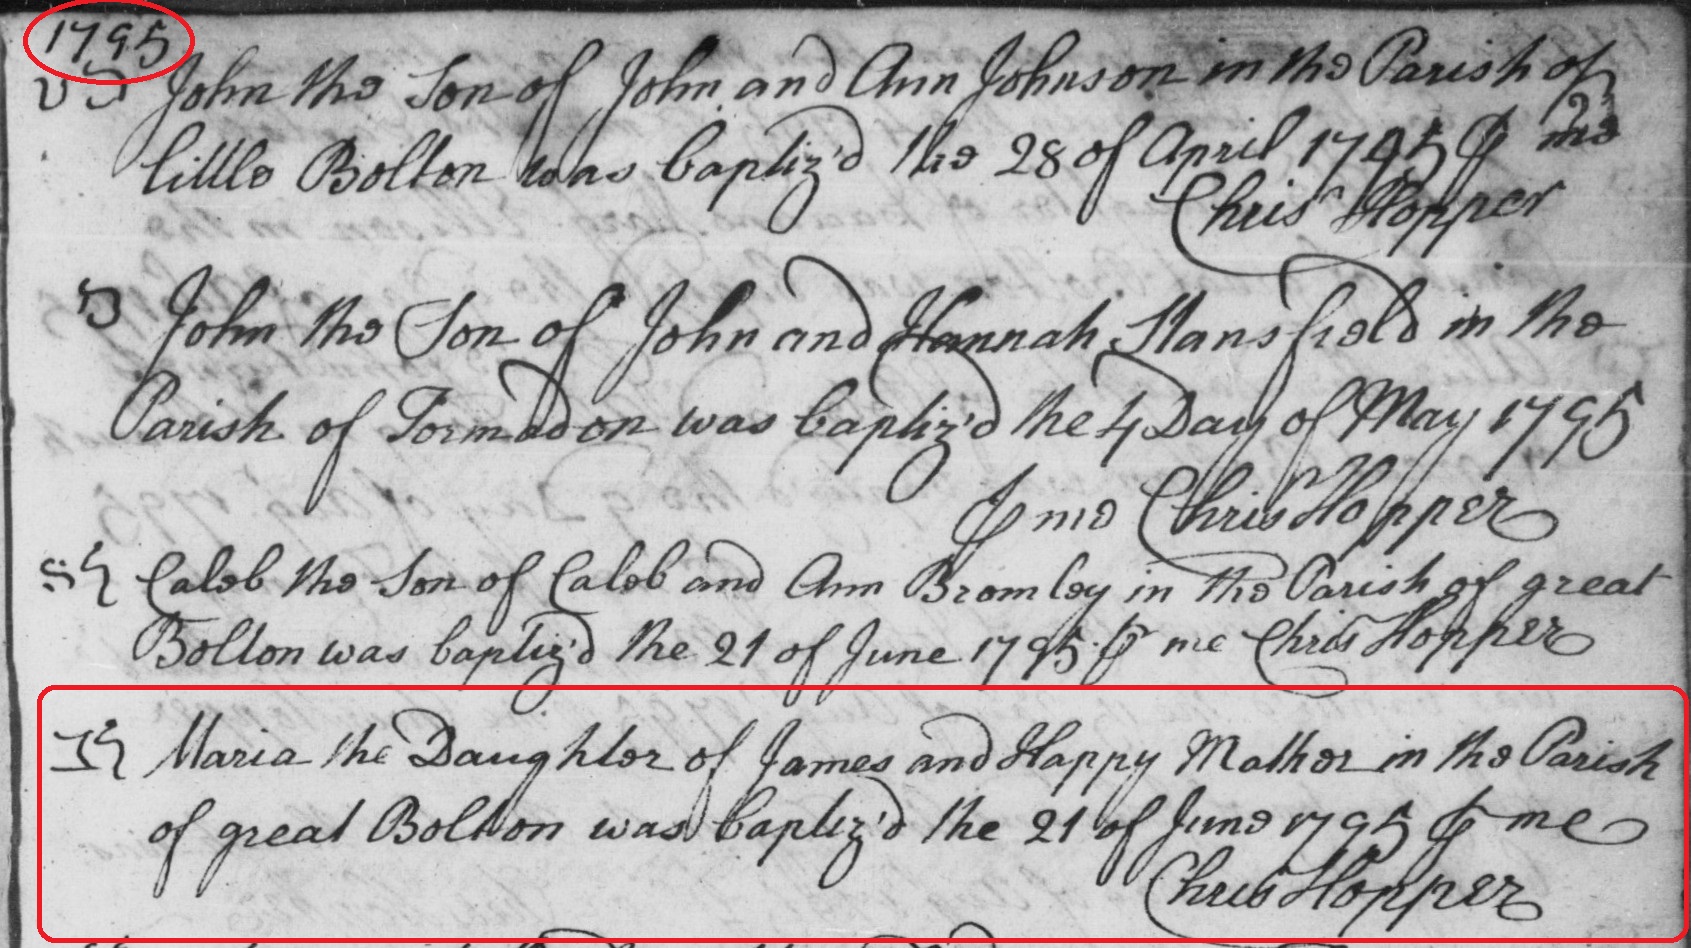 1795
John the Son of John and Ann Johnson in the Parish of
little Bolton was baptiz'd the 28 of April 1795 ⅌ me
Chrisr Hopper
John the Son of John and Hannah Stansfield in the
Parish of Tormodon was baptiz'd the 4 Day of May 1795
⅌ me Chris Hopper
Caleb the Son of Caleb and Ann Bromley in the Parish of great
Bolton was baptiz'd the 21 of June 1795 ⅌ me Chris Hopper
Maria the Daughter of James and Happy Mather in the Parish
of great Bolton was baptiz'd the 21 of June 1795 ⅌ me
Chris Hopper